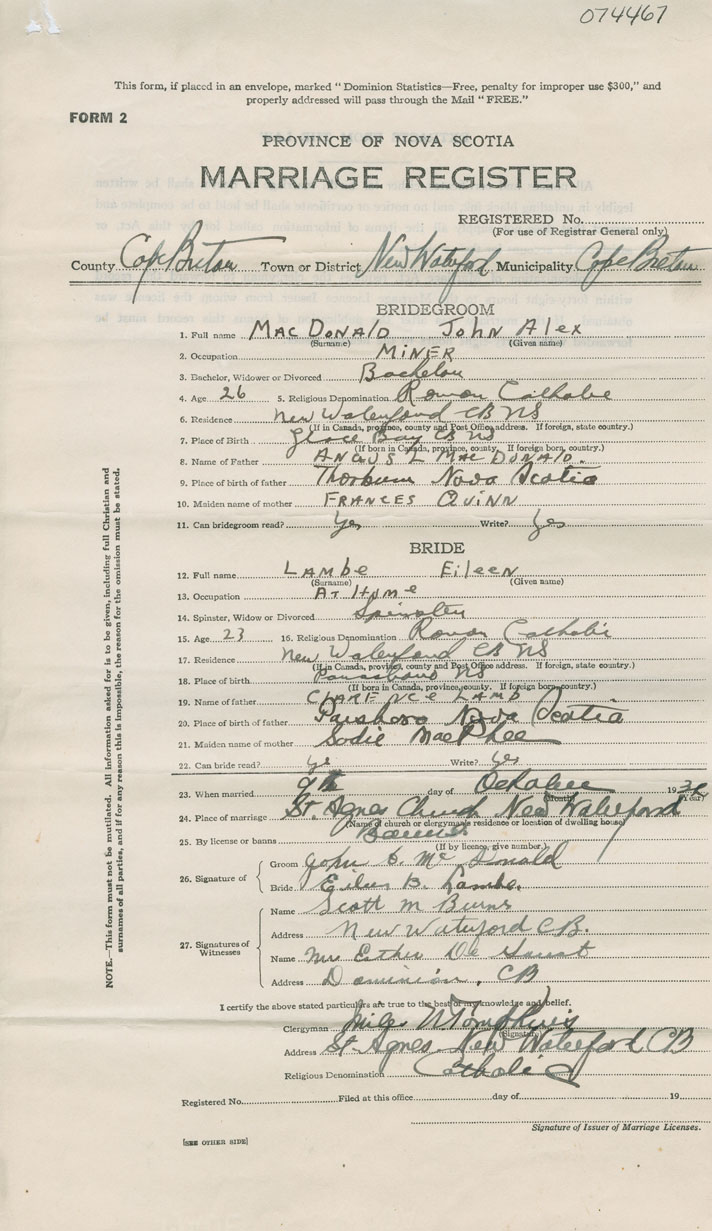 074467
This form, if placed in an envelope, marked "Dominion Statistics—Free, penalty for improper use $300," and
properly addressed will pass through the Mail "FREE."
FORM 2
PROVINCE OF NOVA SCOTIA
MARRIAGE REGISTER
REGISTERED No.
(For use of Registrar General only)
County Cape Breton Town or District New Waterford Municipality Cape Breton
BRIDEGROOM
1. Full name MacDonald John Alex
(Surname) (Given name)
2. Occupation Miner
3. Bachelor, Widower or Divorced Bachelor
4. Age 26 5. Religious Denomination Roman Catholic
6. Residence New Waterford CB NS
(If in Canada, province, county and Post Office address. If foreign, state country.)
7. Place of Birth Glace Bay CB NS
(If born in Canada, province, county. If foreign born, country.)
8. Name of Father Angus L MacDonald.
9. Place of birth of father Thorburn Nova Scotia
10. Maiden name of mother Frances Quinn
11. Can bridegroom read? Yes Write? Yes
BRIDE
12. Full name Lambe Eileen
(Surname) (Given name)
13. Occupation At Home
14. Spinster, Widow or Divorced Spinster
15. Age 23 16. Religious Denomination Roman Catholic
17. Residence New Waterford CB NS
(If in Canada, province, county and Post Office address. If foreign, state country.)
18. Place of birth Parrsboro NS
(If born in Canada, province, county. If foreign born, country.)
19. Name of father Clarence Lamb
20. Place of birth of father Parsboro Nova Scotia
21. Maiden name of mother Sadie MacPhee
22. Can bride read? yes Write? Yes
23. When married 9th day of October 19
(Month) (Year)
24. Place of marriage St. Agnes Church New Waterford
(Name of church or clergyman's residence or location of dwelling house)
25. By license or banns Banns
(If by licence, give number.)
26. Signature of
Groom John A. McDonald
Bride Eileen B. Lambe.
27. Signatures of Witnesses
Name Scott M Burns
Address New Waterford CB.
Name Mrs Esther De
Address Dominion, CB
I certify the above stated particulars are true to the best of my knowledge and belief.
Clergyman Miles N Tompkins
(Signature)
Address St. Agnes New Waterford CB
Religious Denomination Catholic
Registered No. Filed at this office day of 19
Signature of Issuer of Marriage Licenses.
[SEE OTHER SIDE]
NOTE.—This form must not be mutilated. All information asked for is to be given, including full Christian and
surnames of all parties, and if for any reason this is impossible, the reason for the omission must be stated.